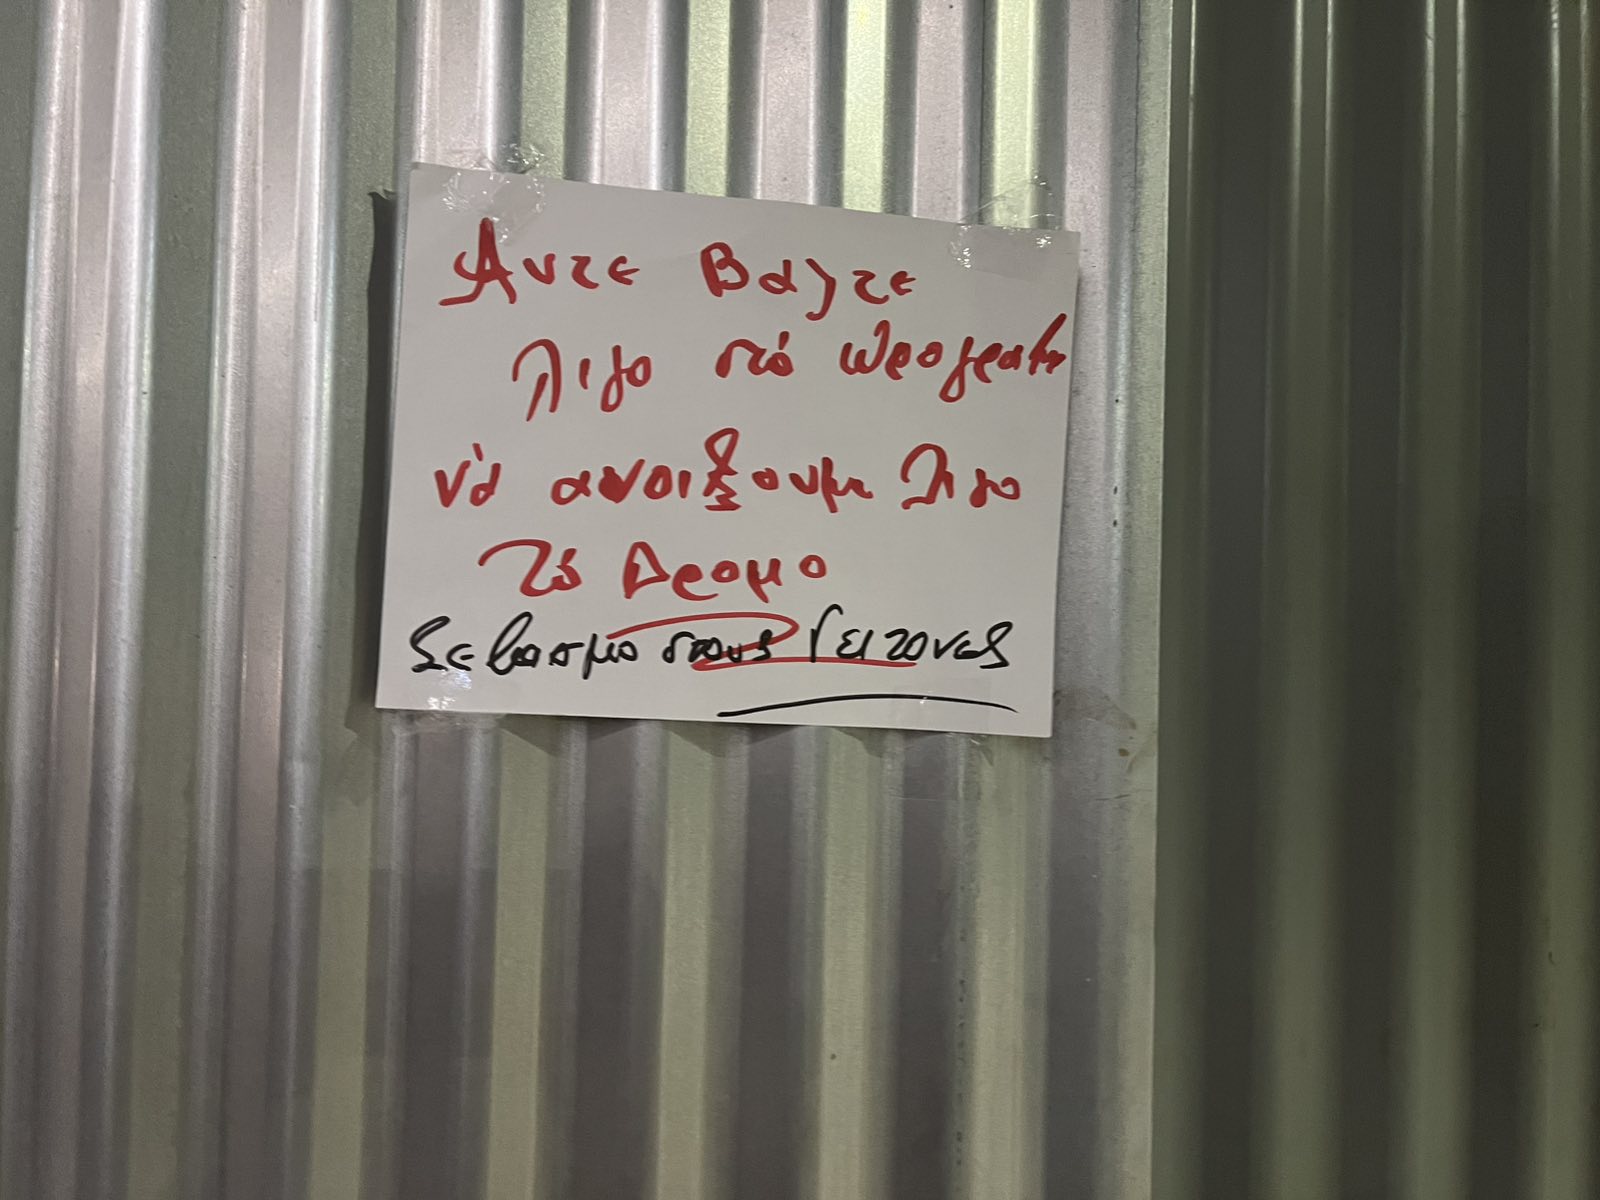 Αντε Βαλτε
λιγο στό προγραμ
νά ανοιξουμε λιγο
τό Δρομο
Σεβασμο στους Γειτονες